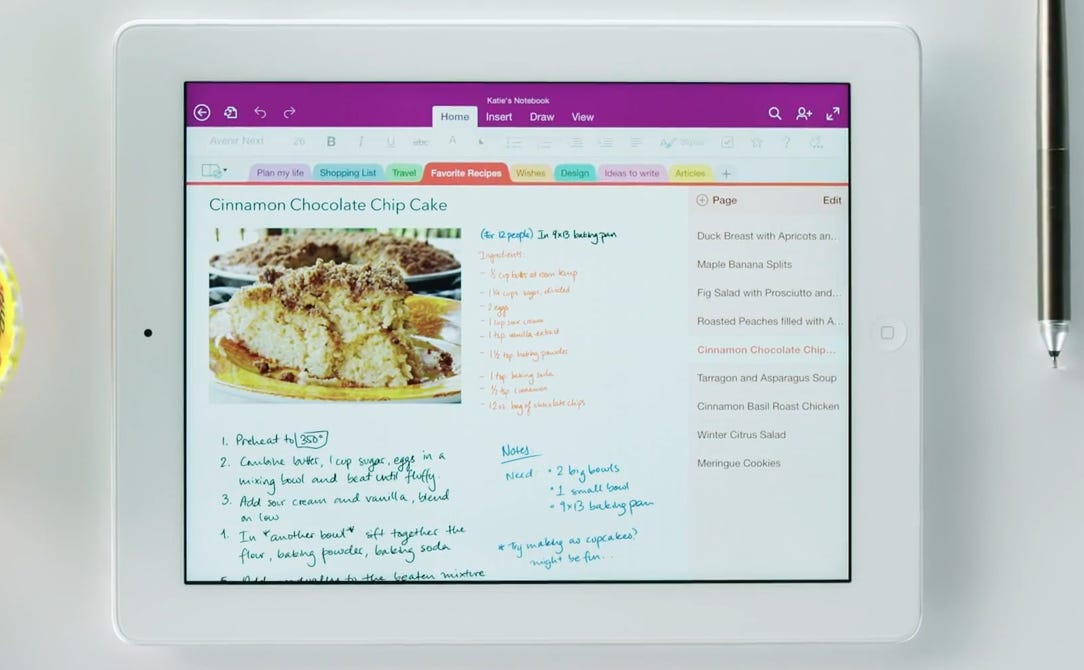 Katie's Notebook
Home Insert Draw View
Avenir Next 26 B I U abc A
Plan my life Shopping List Travel Favorite Recipes Wishes Design Ideas to write Articles +
Cinnamon Chocolate Chip Cake
(for 12 people) In 9x13 baking pan
Ingredients:
- 2 eggs
- 1 cup sour cream
- 1 tsp vanilla extract
- 1½ tsp baking powder
- 1 tsp baking soda
- ½ tsp cinnamon
- 12 oz bag of chocolate chips
1. Preheat to 350°
2. Combine butter, 1 cup sugar, eggs in a
mixing bowl and beat until fluffy.
3. Add sour cream and vanilla, blend
on low
In *another bowl* sift together the
flour, baking powder, baking soda
to the beaten mixture
Notes
Need: • 2 big bowls
• 1 small bowl
• 9x13 baking pan
* Try making as cupcakes?
might be fun...
Page Edit
Duck Breast with Apricots an...
Maple Banana Splits
Fig Salad with Prosciutto and...
Roasted Peaches filled with A...
Cinnamon Chocolate Chip...
Tarragon and Asparagus Soup
Cinnamon Basil Roast Chicken
Winter Citrus Salad
Meringue Cookies